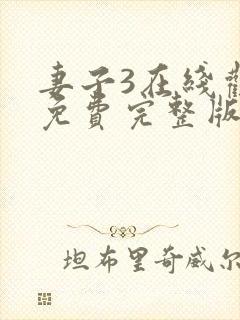 妻子3在线
免費完整版
坦布里奇威尔